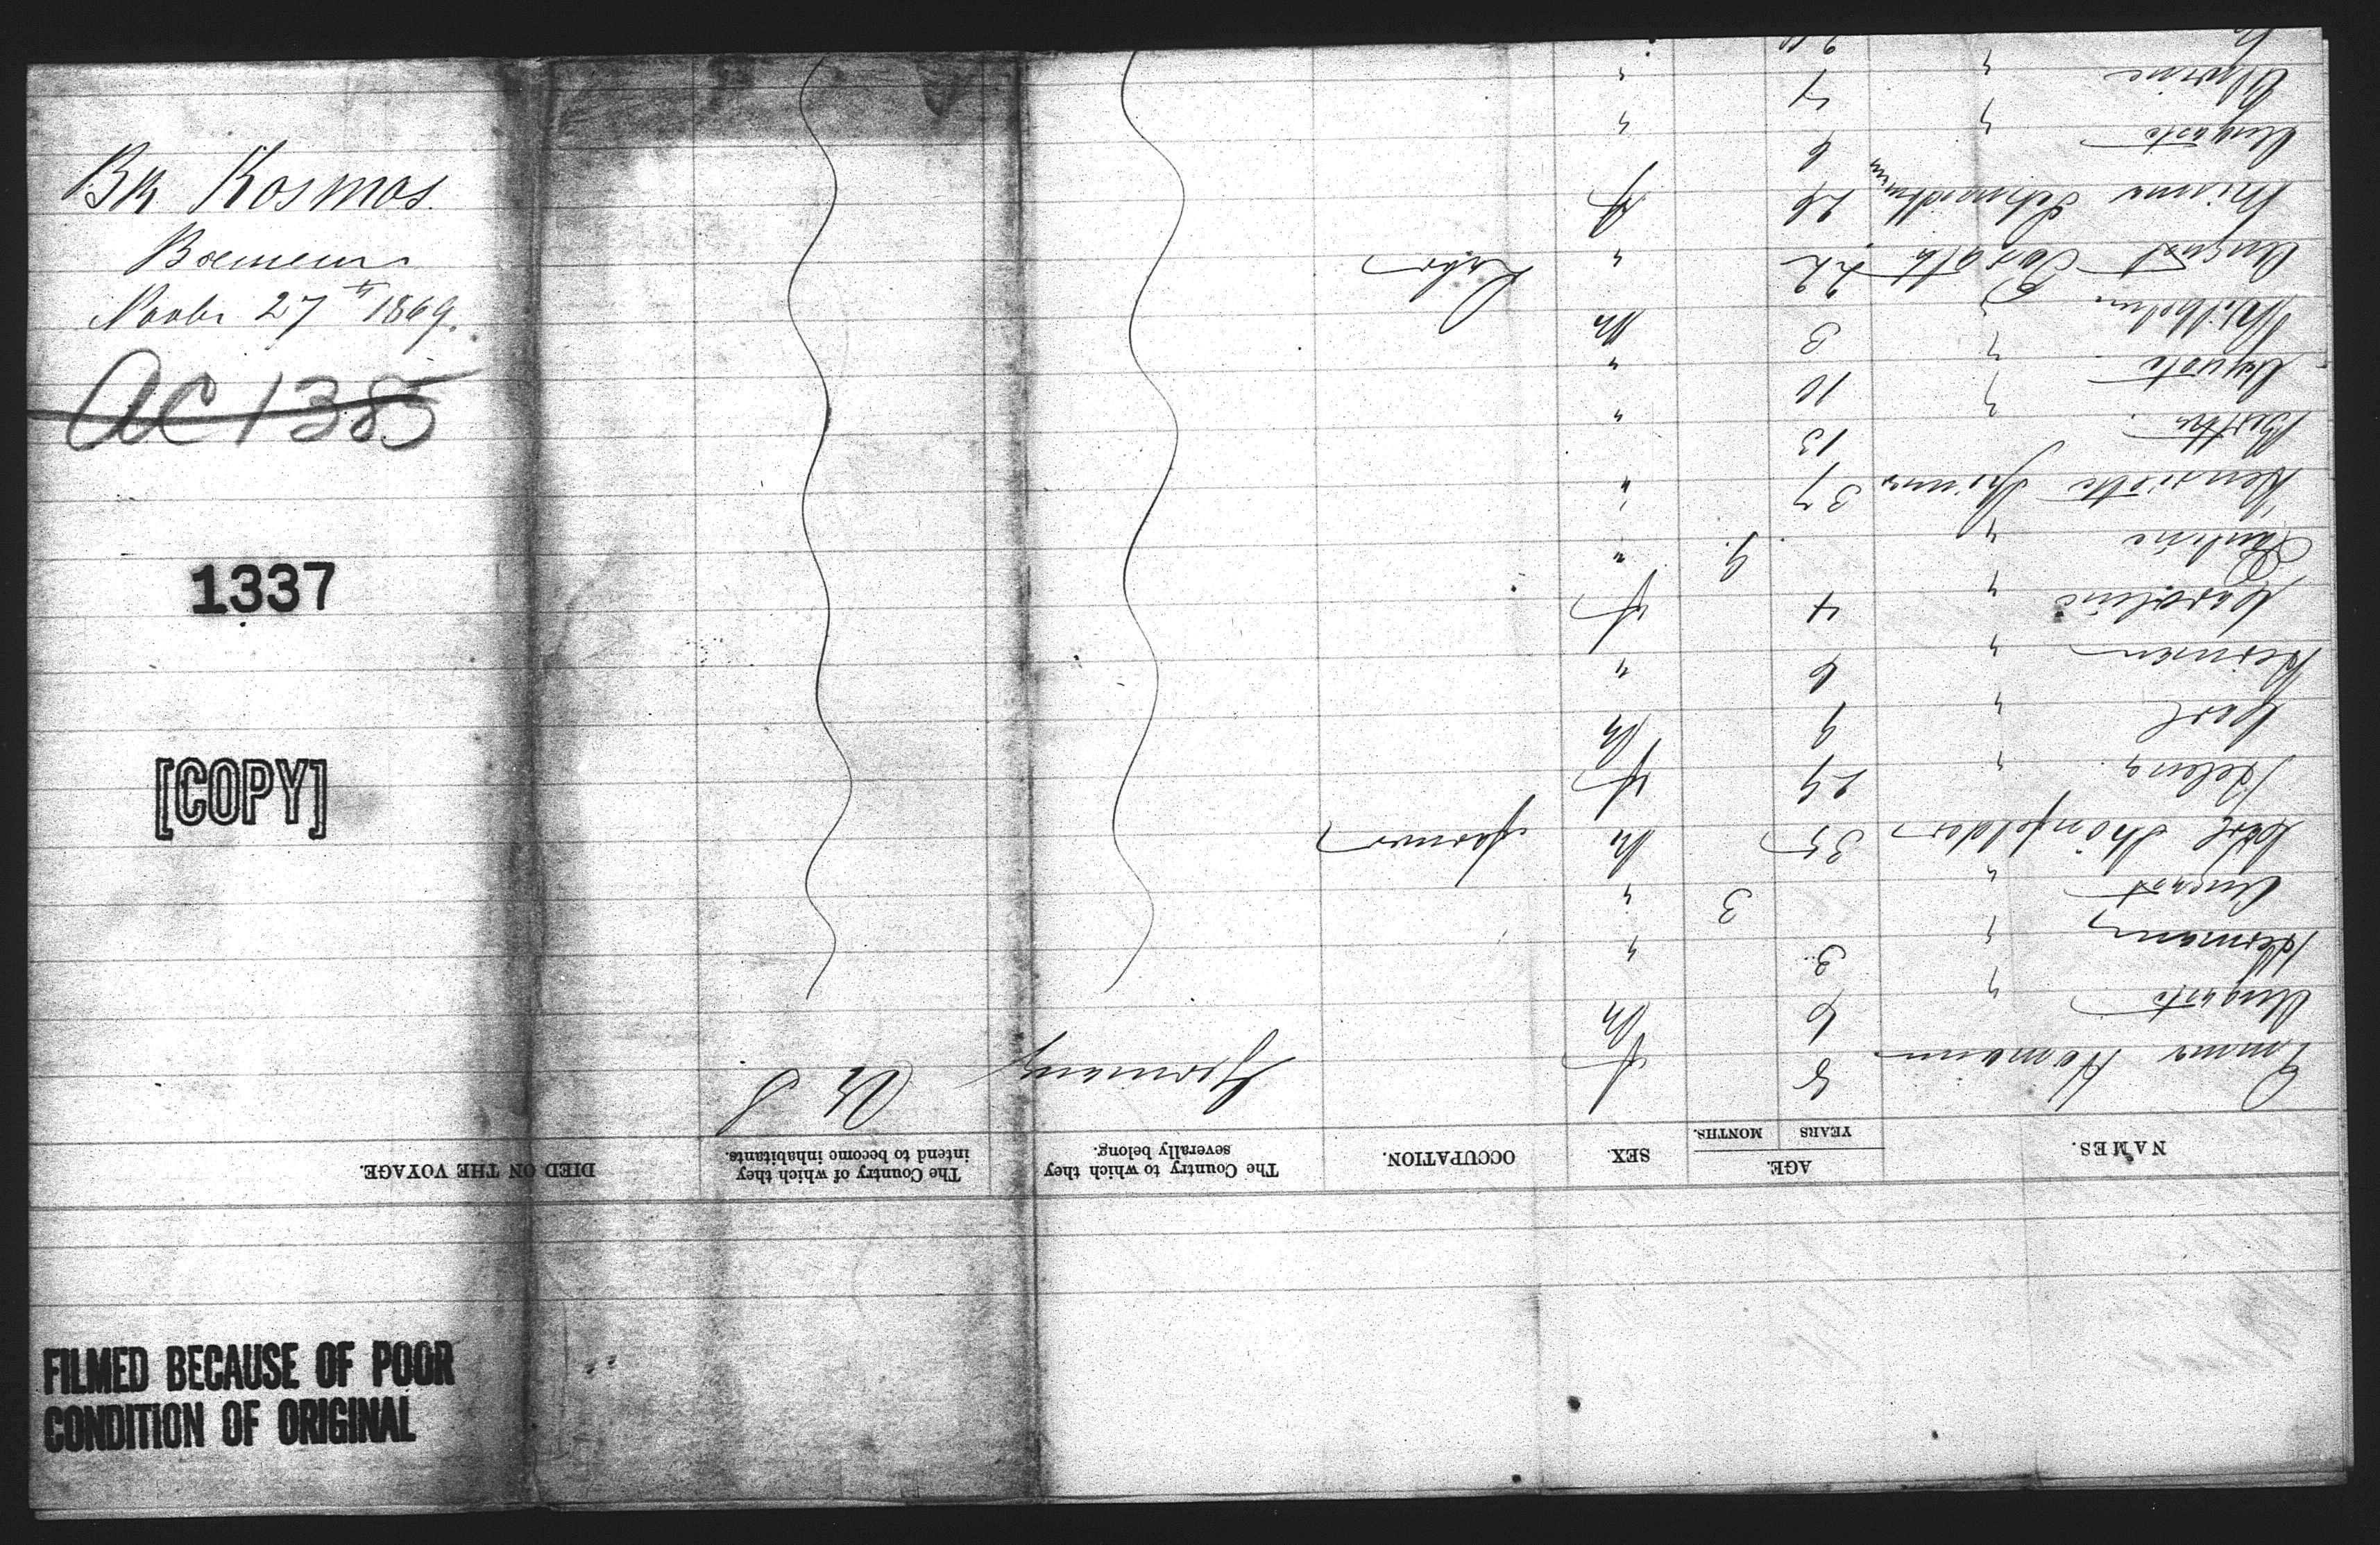 Bk Kosmos.
Bremen
Novbr 27th 1869.
AC 1385
1337
[COPY]
FILMED BECAUSE OF POOR
CONDITION OF ORIGINAL
NAMES. AGE. YEARS MONTHS. SEX. OCCUPATION. The Country to which they severally belong. The Country of which they intend to become inhabitants. DIED ON THE VOYAGE.
Emma Hamann 8 f Germany U S
Auguste " 6 M
Hermann " 3 "
August " 3 "
Carl 35 M farmer
Helena " 29 f
Carl " 9 M
Herman " 6 "
Caroline " 4 f
Pauline " 9. "
Henriette 37 "
Bertha 13 "
Auguste " 10 "
Wilhelm " 3 M
August 22 " Labor
Minna 26 f
Auguste " 6 "
" 4 "